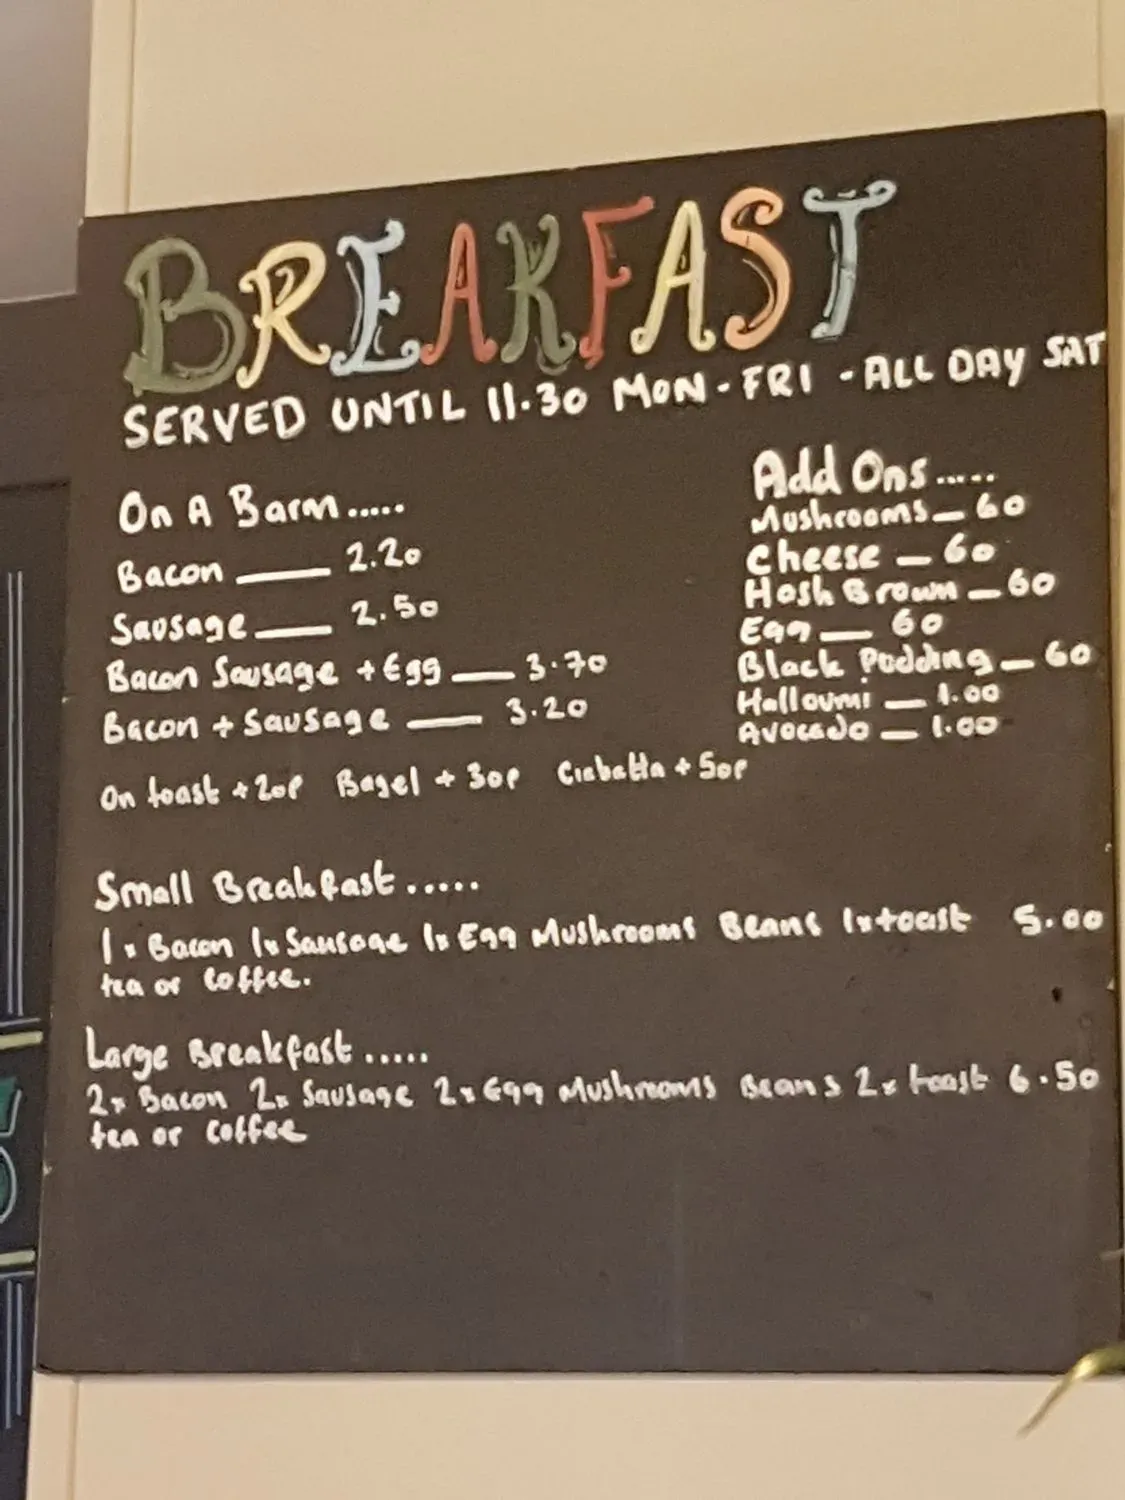 BREAKFAST
SERVED UNTIL 11.30 MON-FRI - ALL DAY SAT
On A Barm.....
Bacon — 2.20
Sausage — 2.50
Bacon Sausage + Egg — 3.70
Bacon + Sausage — 3.20
On toast + 20p Bagel + 30p Ciabatta + 50p
Add Ons.....
Mushrooms — 60
Cheese — 60
Hash Brown — 60
Egg — 60
Black Pudding — 60
Halloumi — 1.00
Avocado — 1.00
Small Breakfast.....
1x Bacon 1x Sausage 1x Egg Mushrooms Beans 1x toast 5.00
tea or coffee.
Large Breakfast.....
2x Bacon 2x Sausage 2x Egg Mushrooms Beans 2x toast 6.50
tea or coffee